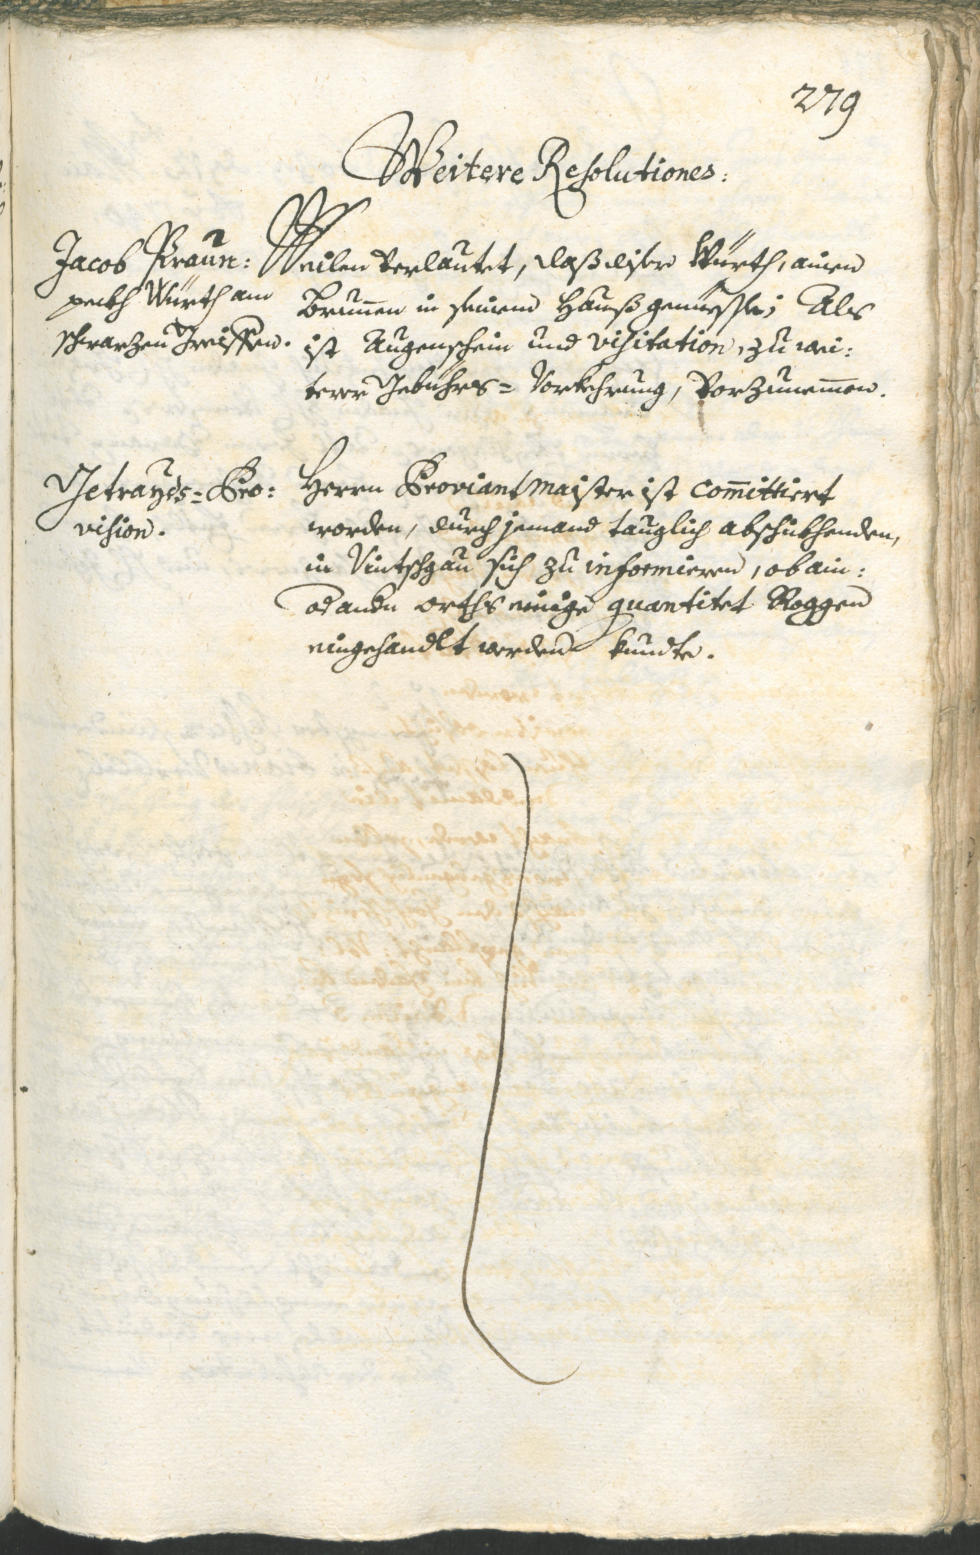 279
Weitere Resolutiones:
Jacob Praun:
peckh Würth am
schwarzen Greiffen.
Weilen verlautet, daß diser Würth, ainen
Brunnen in seinem Hauß gemessen; Als
ist Augenschein und visitation, zu wei:
terer Gebührs= Vorkehrung, vorzunemmen.
Getrayds=Pro:
vision.
Herrn Proviantmaister ist committiert
worden, durch jemand tauglich abschikhenden,
in Vintschgau sich zu informieren, ob ain:
od andern orths einige quantitet Roggen
eingehandlt werden kundte.